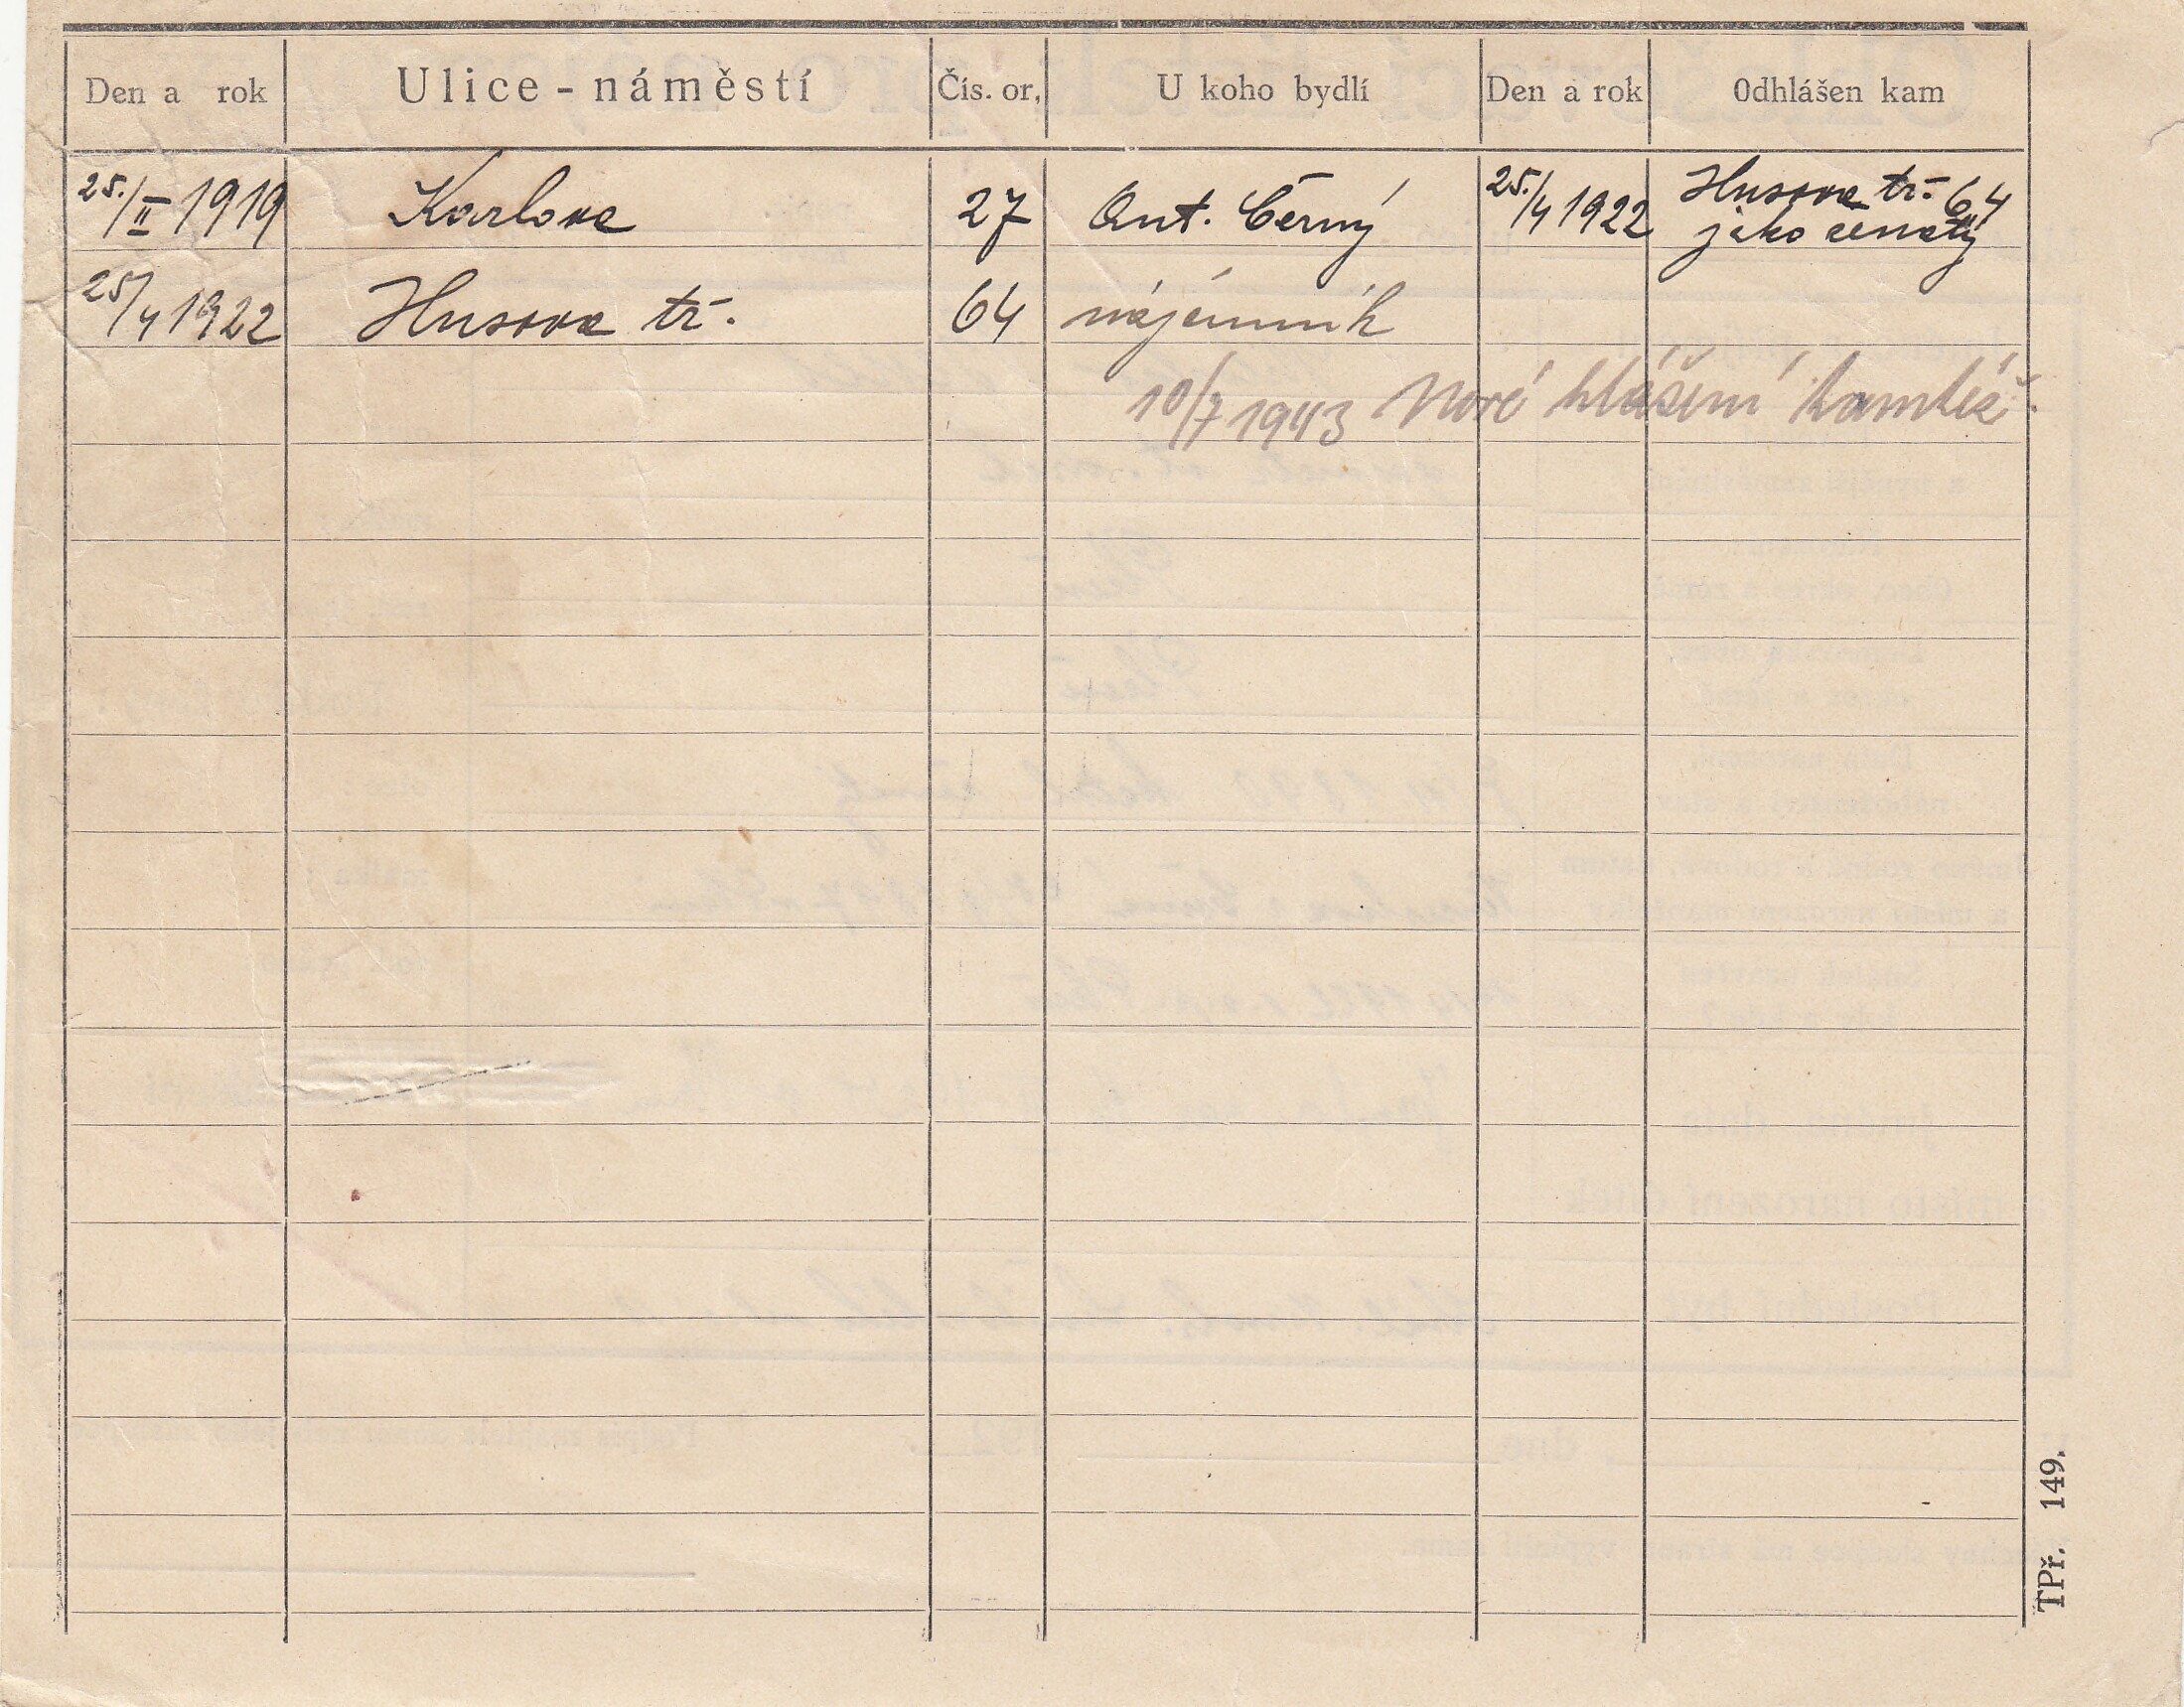 Den a rok Ulice - náměstí Čís. or. U koho bydlí Den a rok Odhlášen kam
25./II 1919 Karlova 27 Ant. Černý 25./4 1922 Husova tř. 64
jako ženatý
25/4 1922 Husova tř. 64 nájemník
10/7 1943 Nové hlášení tamtéž.
TPř. 149.